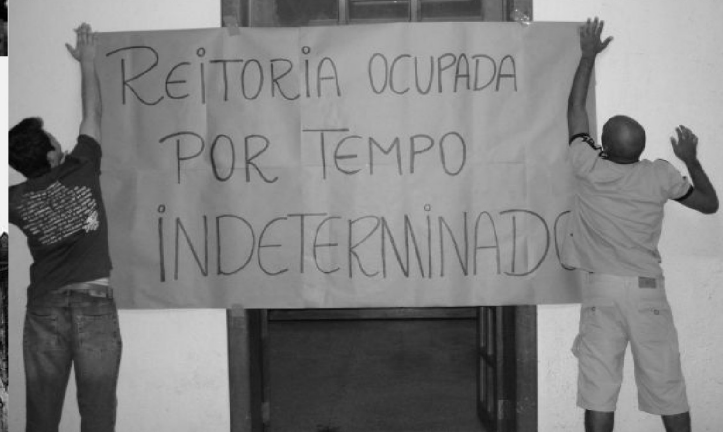 REITORIA OCUPADA
POR TEMPO
INDETERMINADO